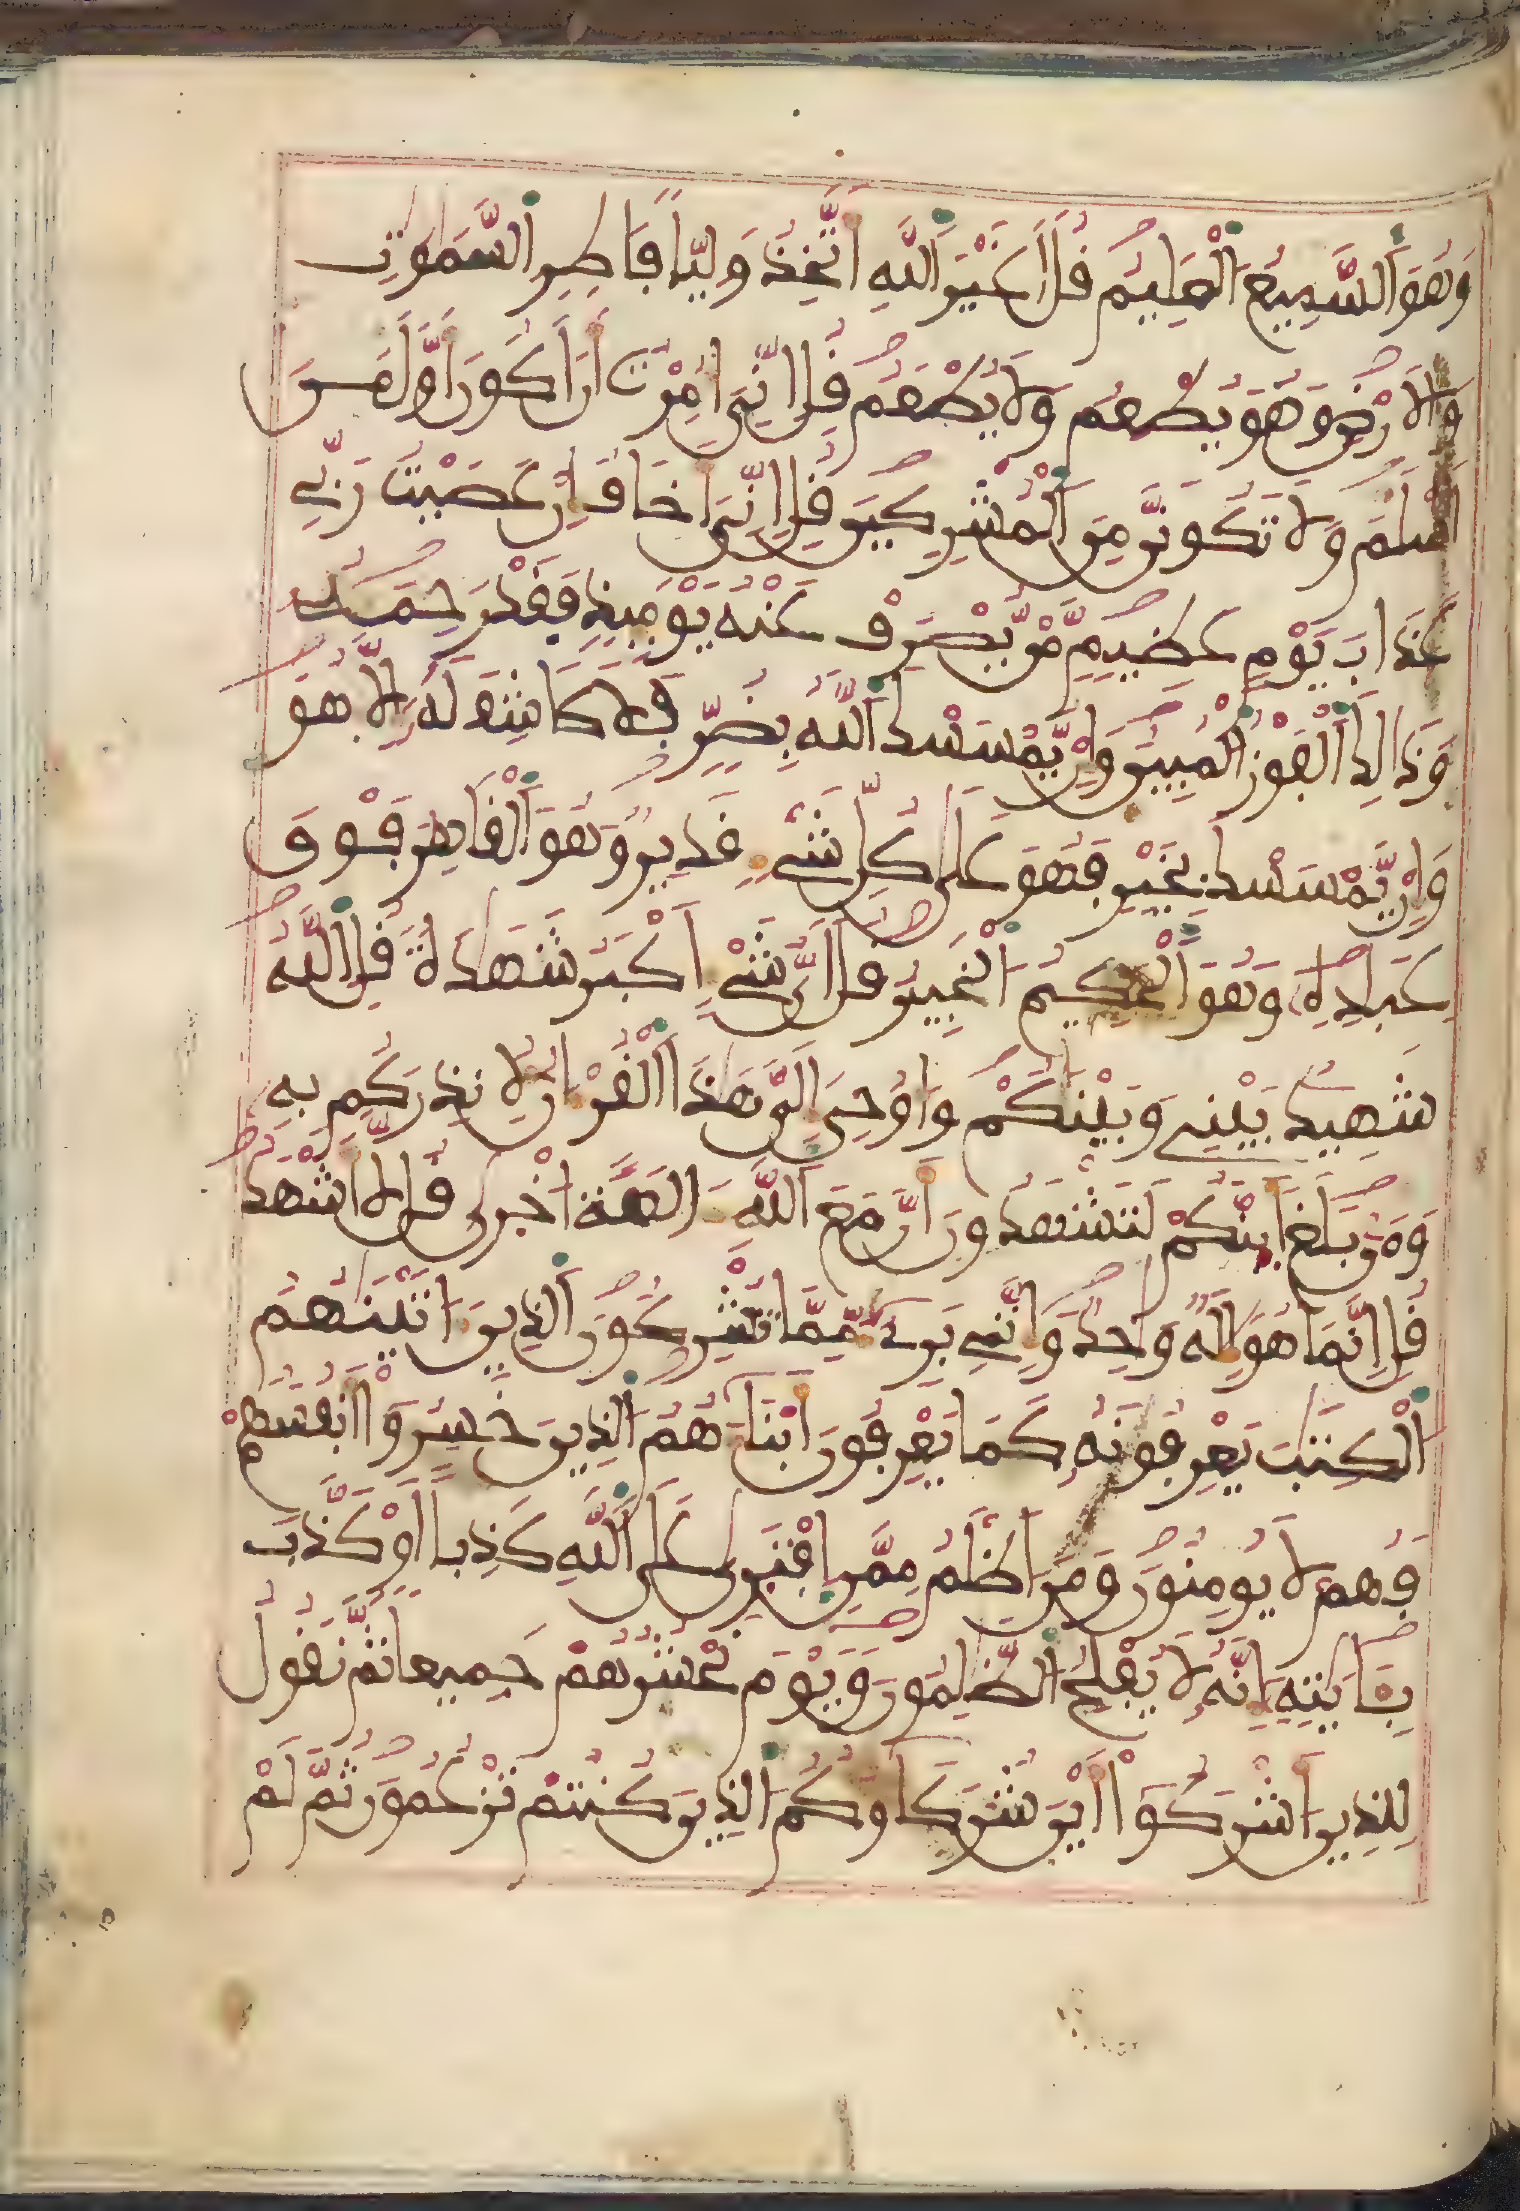 وَهُوَ اَ۬لسَّمِيعُ اُ۬لْعَلِيمُ قُلَ اَغَيْرَ اَ۬للَّهِ أَتَّخِذُ وَلِيّاٗ فَاطِرِ اِ۬لسَّمَٰوَٰتِ
وَالَارْضِ وَهُوَ يُطْعِمُ وَلَا يُطْعَمُ قُلِ اِنِّيَ أُمِرْتُ أَنَ اَكُونَ أَوَّلَ مَنَ
اَسْلَمَ وَلَا تَكُونَنَّ مِنَ اَ۬لْمُشْرِكِينَ قُلِ اِنِّيَ أَخَافُ إِنْ عَصَيْتُ رَبِّي
عَذَابَ يَوْمٍ عَظِيمٖ مَّنْ يُّصْرَفْ عَنْهُ يَوْمَئِذٖ فَقَدْ رَحِمَهُ
وَذَالِكَ اَ۬لْفَوْزُ اُ۬لْمُبِينُ وَإِنْ يَّمْسَسْكَ اَ۬للَّهُ بِضُرّٖ فَلَا كَاشِفَ لَهُ إِلَّا هُوَ
وَإِنْ يَّمْسَسْكَ بِخَيْرٖ فَهُوَ عَلَىٰ كُلِّ شَيْءٖ قَدِيرٞ وَهُوَ اَ۬لْقَاهِرُ فَوْقَ
عِبَادِهِ وَهُوَ اَ۬لْحَكِيمُ اُ۬لْخَبِيرُ قُلَ اَيُّ شَيْءٍ اَكْبَرُ شَهَٰدَةٗ قُلِ اِ۬للَّهُ
شَهِيدٌ بَيْنِي وَبَيْنَكُمْ وَأُوحِيَ إِلَيَّ هَٰذَا اَ۬لْقُرْءَانُ لِأُنذِرَكُم بِهِ
وَمَنۢ بَلَغَ أَئِنَّكُمْ لَتَشْهَدُونَ أَنَّ مَعَ اَ۬للَّهِ ءَالِهَةً اُخْرَىٰ قُل لَّا أَشْهَدُ
قُلِ اِنَّمَا هُوَ إِلَٰهٞ وَٰحِدٞ وَإِنَّنِي بَرِيٓءٞ مِّمَّا تُشْرِكُونَ اَ۬لذِينَ ءَاتَيْنَٰهُمُ
اُ۬لْكِتَٰبَ يَعْرِفُونَهُ كَمَا يَعْرِفُونَ أَبْنَآءَهُمُ اُ۬لذِينَ خَسِرُوٓاْ أَنفُسَهُمْ
فَهُمْ لَا يُومِنُونَ وَمَنَ اَظْلَمُ مِمَّنِ اِ۪فْتَرَىٰ عَلَى اَ۬للَّهِ كَذِباً اَوْ كَذَّبَ
بِـَٔايَٰتِهِ إِنَّهُ لَا يُفْلِحُ اُ۬لظَّٰلِمُونَ وَيَوْمَ نَحْشُرُهُمْ جَمِيعاٗ ثُمَّ نَقُولُ
لِلذِينَ أَشْرَكُوٓاْ أَيْنَ شُرَكَاؤُكُمُ اُ۬لذِينَ كُنتُمْ تَزْعُمُونَ ثُمَّ لَمْ